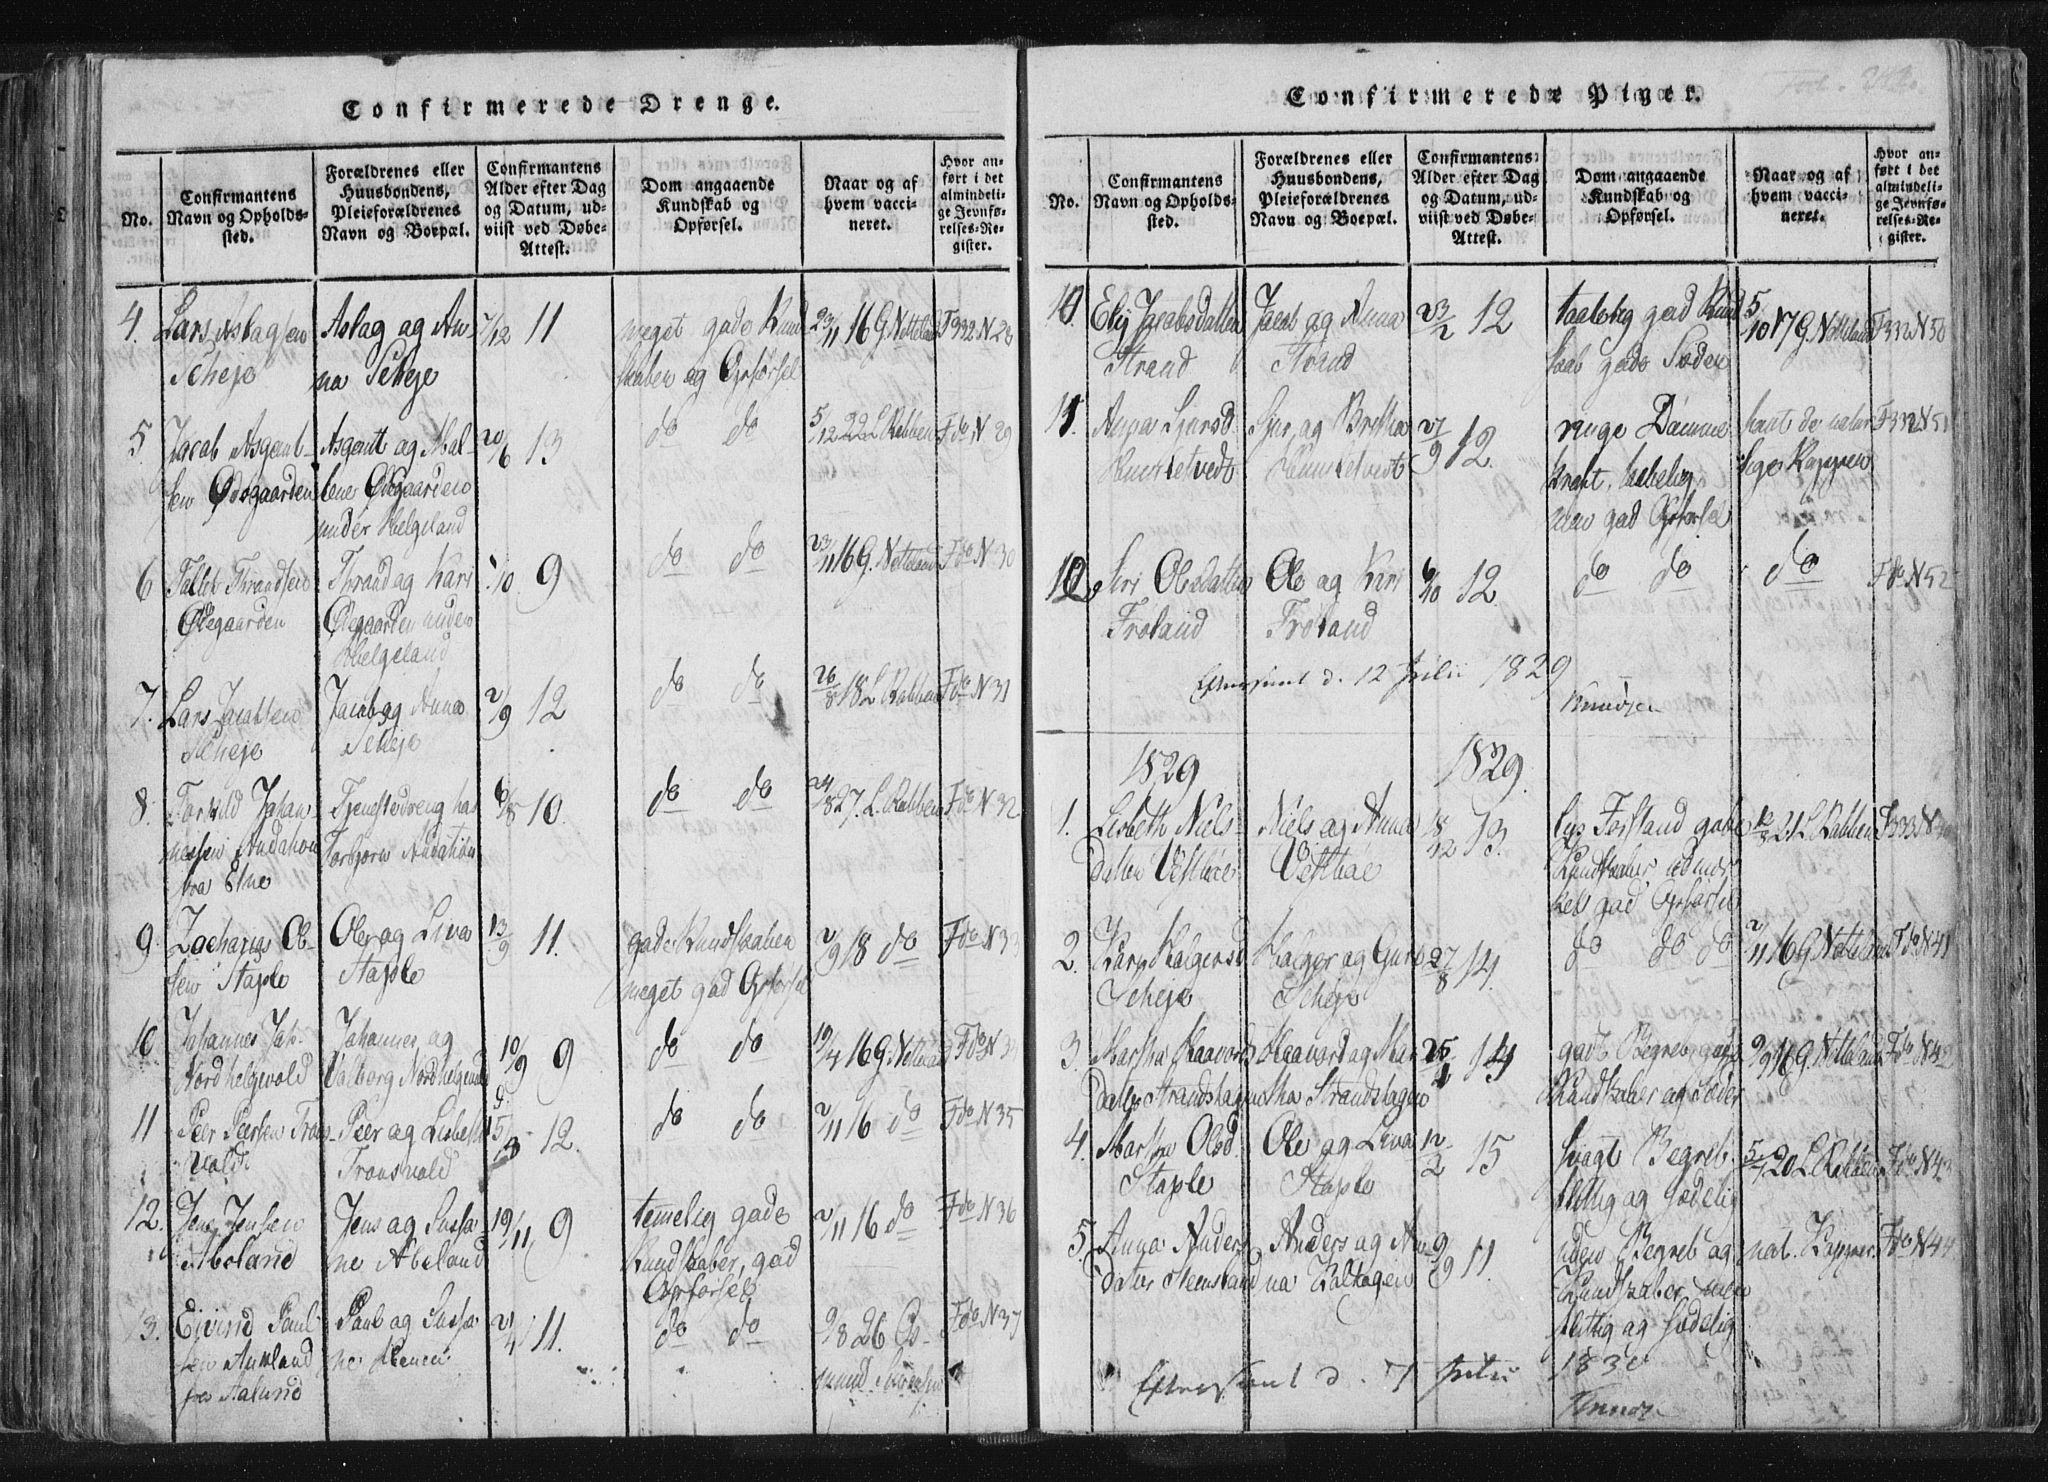 Confirmerede Drenge.
No.
Confirmantens
Navn og Opholds-
sted.
Forældrenes eller
Huusbondens,
Pleieforældrenes
Navn og Boepæl.
Confirmantens
Alder efter Dag
og Datum, ud-
viist ved Døbe-
Attest.
Dom angaaende
Kundskab og
Opførsel.
Naar og af
hvem vacci-
neret.
Hvor an-
ført i det
almindeli-
ge Jevnfø-
relses-Re-
gister.
4. Lars Aslagsen
Scheje
Aslag og An-
na Scheje
7/12 11
meget gode Kund
skaber og Opførsel
23/11 16 G. Netteland
F 332 N 28
5. Jacob Asgaut-
sen Ødegaarden
Asgaut og Mal-
lene Ødegaarden
under Helgeland
20/6 13
do do
5/12 22 L Rabben
F do N 29
6 Tallek Thrandsen
Ødegaarden
Thrand og Kari
Ødegaarden under
Helgeland
1/10 9
do do
23/11 16 G. Netteland
F do N 30
7. Lars Jacobsen
Scheje
Jacob og Anna
Scheje
2/9 12
do do
26/8 18 L Rabben
F do N 31
8. Torkild Johan-
nessen
fra Etne
Tjenestedreng hos
Torbjørn
6/8 10.
do do
24/8 27. L. Rabben
F do N 32
9. Zacharias Ol-
sen Staple
Ole og Liva
Staple
13/9 11.
gode Kundskaber
meget god Opførsel
2/9 18 do
F do N 33
10 Johannes Joh-
Nordhelgevold
Johannes og
Valborg Nordhelgevold
10/9 9
do do
19/4 16 G. Netteland
F do N 34
11 Peer Peersen Trons-
vold
Peer og Lisbeth
Tronsvold
15/3 12.
do do
2/11 16 do
F do N 35
12. Jens Jensen
Abeland
Jens og Susan-
ne Abeland
19/11 9
temelig gode
Kundskaber, god
Opførsel
2/11 16 do
F do N 36
13. Eivind Paul-
sen
Paul og Susan-
ne
2/4 11.
do do
9/8 26
F do N 37
Confirmerede Piger.
No.
Confirmantens
Navn og Opholds-
sted.
Forældrenes eller
Huusbondens,
Pleieforældrenes
Navn og Boepæl.
Confirmantens
Alder efter Dag
og Datum, ud-
viist ved Døbe-
Attest.
Dom angaaende
Kundskab og
Opførsel.
Naar og af
hvem vacci-
neret.
Hvor an-
ført i det
almindeli-
ge Jevnfø-
relses-Re-
gister.
10. Elij Jacobsdatter
Strand
Jacob og Anna
Strand
23/2 12
taalelig god Kund
skab gode Sæder
5/10 17 G. Netteland
F 332 N 50
11. Anna Sjursd.
Sjur og Britha
27/9 12.
ringe Dømme
kraft,
men god Opførsel
havt de natur
lige Kopper
F 332 N 51
12 Siri Olesdatter
Frøland
Ole og Kari
Frøland
6/10 12.
do do
do
F do N 52
Efterseet d. 12 Julii 1829
Knudsen
1829 1829.
1. Lisbeth Niels-
datter Vesthøe
Niels og Anna
Vesthøe
18/12 13.
lys Forstand gode
Kundskaber udmær
ket god Opførsel
12/8 21 L Rabben
F 333 N 40
2. Kari Holgersd
Scheje
Holger og Guro
Scheje
27/8 14.
do do do
2/11 16 G Netteland
F do N 41
3. Martha Haavards
datter Strandshagen
Haavard og Mar
tha Strandshagen
25/1 14
godt Begreb gode
Kundskaber og Sæder
9/9 16 G. Netteland
F do N 42
4. Martha Olsd.
Staple
Ole og Liva
Staple
12/2 15
svagt Begreb
flittig og sædelig
5/7 20 L Rabben
F do N 43
5. Anna Anders-
datter
Anders og An-
na
9/9 11.
uden Begreb og
Kundskaber men
flittig og sædelig
nat. Kopper
F do N 44
Efterseet d. 7 Julii 1830